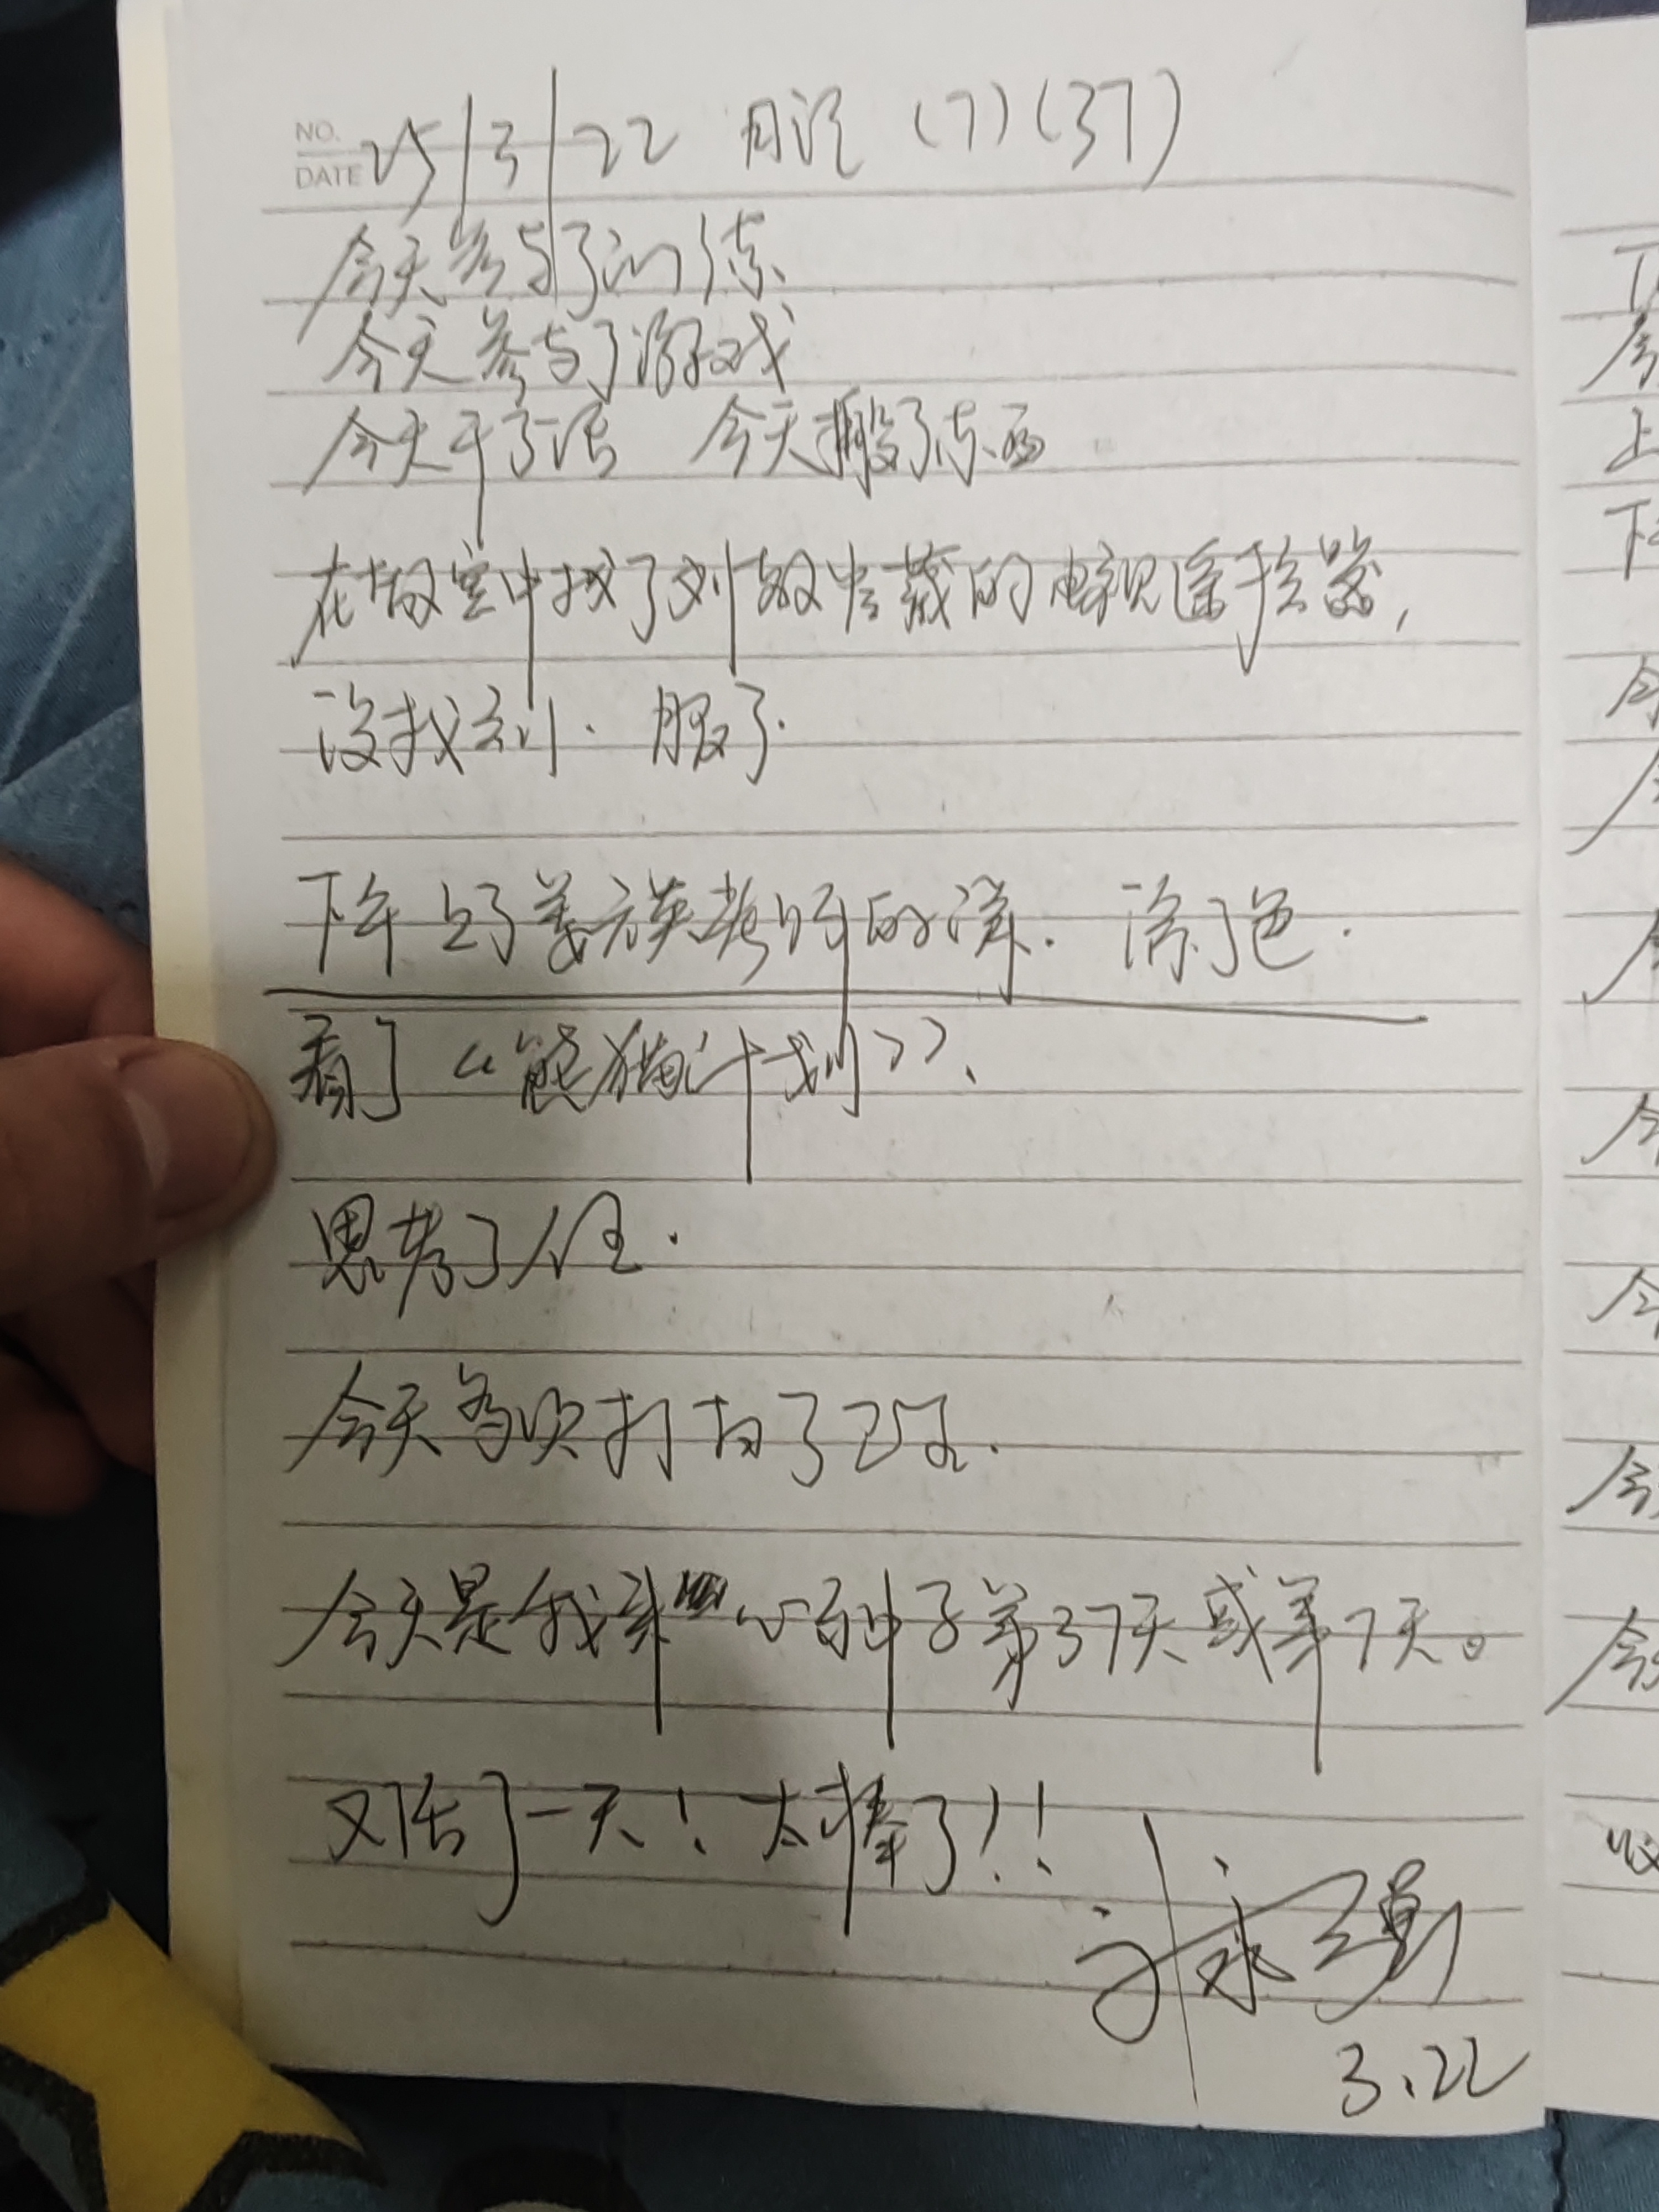 NO.
DATE 25/3/22 日记 (7)(37)
今天参与了训练
今天参与了游戏
今天干了活 今天搬了东西
在教室中找了刘教官藏的电视遥控器,
没找到. 服了.
下午上了姜老师的课. 涂了色.
看了《熊猫计划》.
思考了人生.
今天多次打扫了卫生.
今天是我来心种子第37天或第7天。
又活了一天! 太棒了!!
3.22